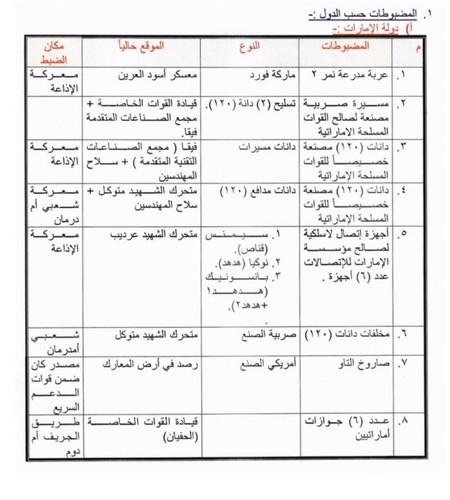 ١. المضبوطات حسب الدول :-
أ) دولة الإمارات :-
م المضبوطات النوع الموقع حالياً مكان الضبط
١. عربة مدرعة نمر ٢ ماركة فورد معسكر أسود العرين معركة الإذاعة
٢. مسيرة صربية مصنعة لصالح القوات المسلحة الاماراتية تسليح (٢) دانة (١٢٠). قيادة القوات الخاصة + مجمع الصناعات المتقدمة فيقا.
٣. دانات (١٢٠) مصنعة خصيصاً للقوات المسلحة الإماراتية دانات مسيرات فيقا ( مجمع الصناعات التقنية المتقدمة ) + سلاح المهندسين معركة الإذاعة
٤. دانات (١٢٠) مصنعة خصيصاً للقوات المسلحة الإماراتية دانات مدافع (١٢٠) متحرك الشهيد متوكل + سلاح المهندسين معركة شعبي أم درمان
٥. أجهزة إتصال لاسلكية لصالح مؤسسة الإمارات للإتصالات عدد (٦) أجهزة . ١. سيمنس (قناص). ٢. نوكيا (هدهد). ٣. بانسونيك (هدهد١ +هدهد٢). متحرك الشهيد عرديب معركة الإذاعة
٦. مخلفات دانات (١٢٠) صربية الصنع متحرك الشهيد متوكل شعبي أمدرمان
٧. صاروخ التاو أمريكي الصنع رصد في أرض المعارك مصدر كان ضمن قوات الدعم السريع
٨. عدد (٦) جوازات أماراتيين قيادة القوات الخاصة (الحفيان) طريق الجريف أم دوم